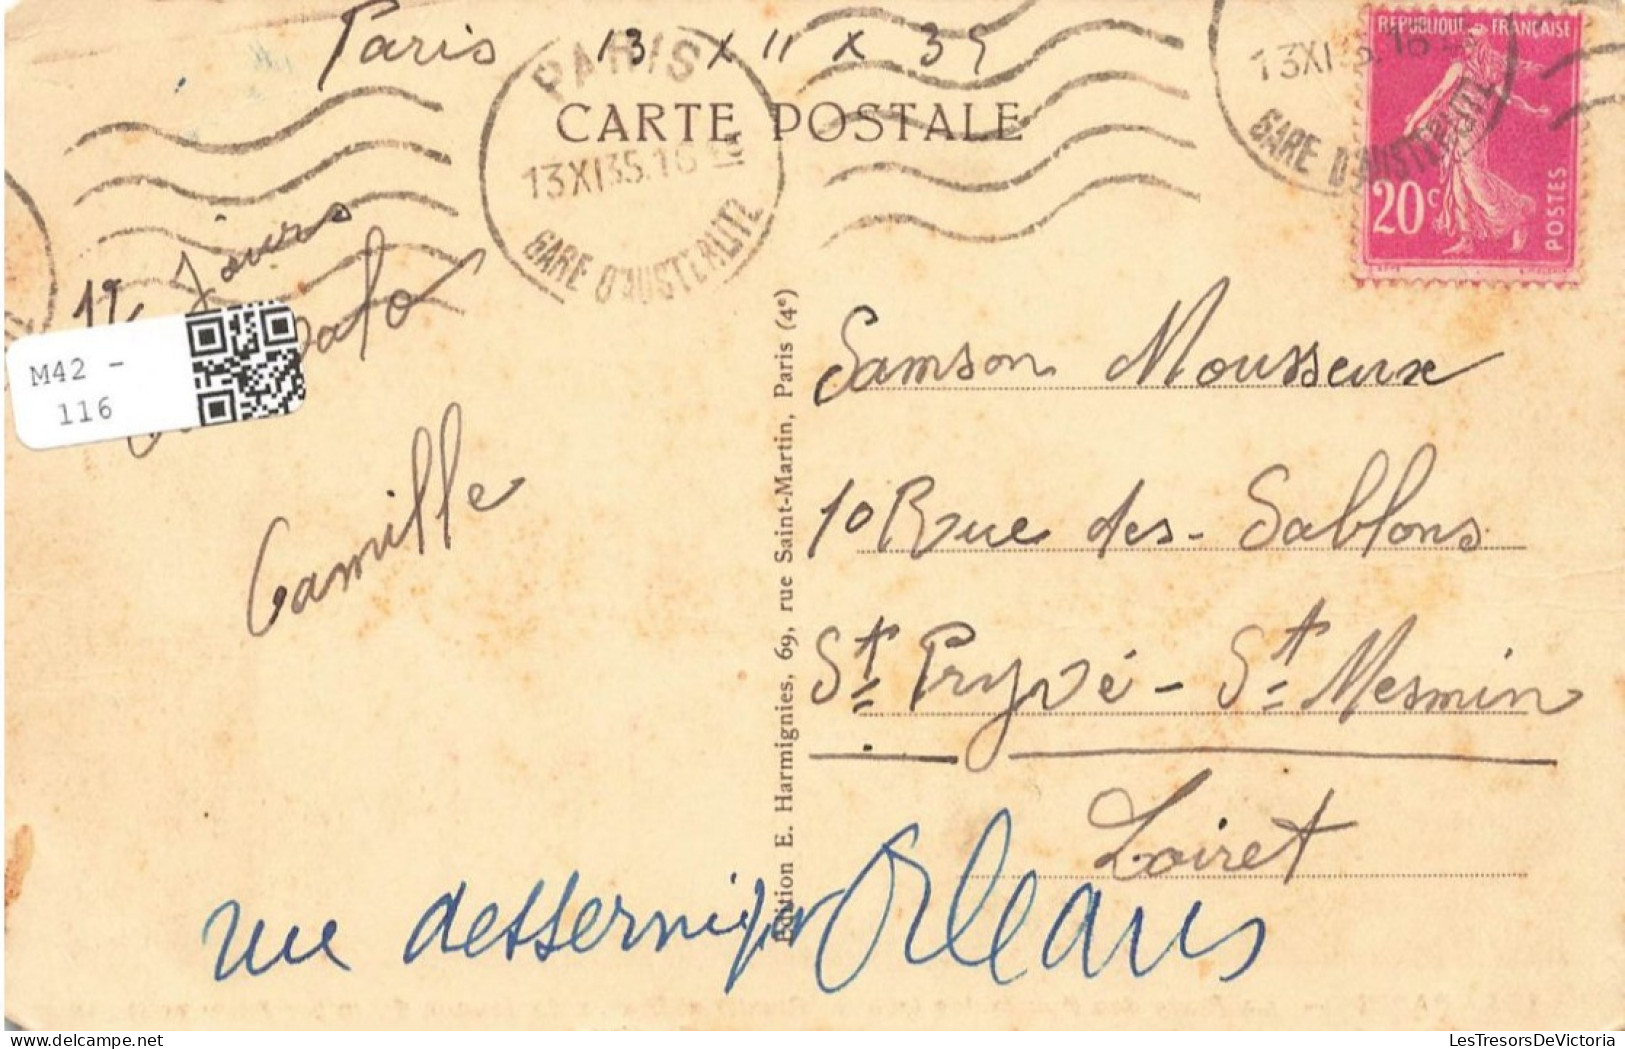 Paris 13 XII X 35
PARIS
13XI35.16
GARE D'AUSTERLITZ
CARTE POSTALE
13XI35.16
GARE D'AUSTERLITZ
REPUBLIQUE FRANÇAISE
20c
POSTES
Jours
M42 -
116
Camille
Samson Mousseux
10 Rue des - Sablons
St Pryvé - St Mesmin
Loiret
Orleans
rue
Edition E. Harmignies, 69, rue Saint-Martin, Paris (4e)
LesTresorsDeVictoria